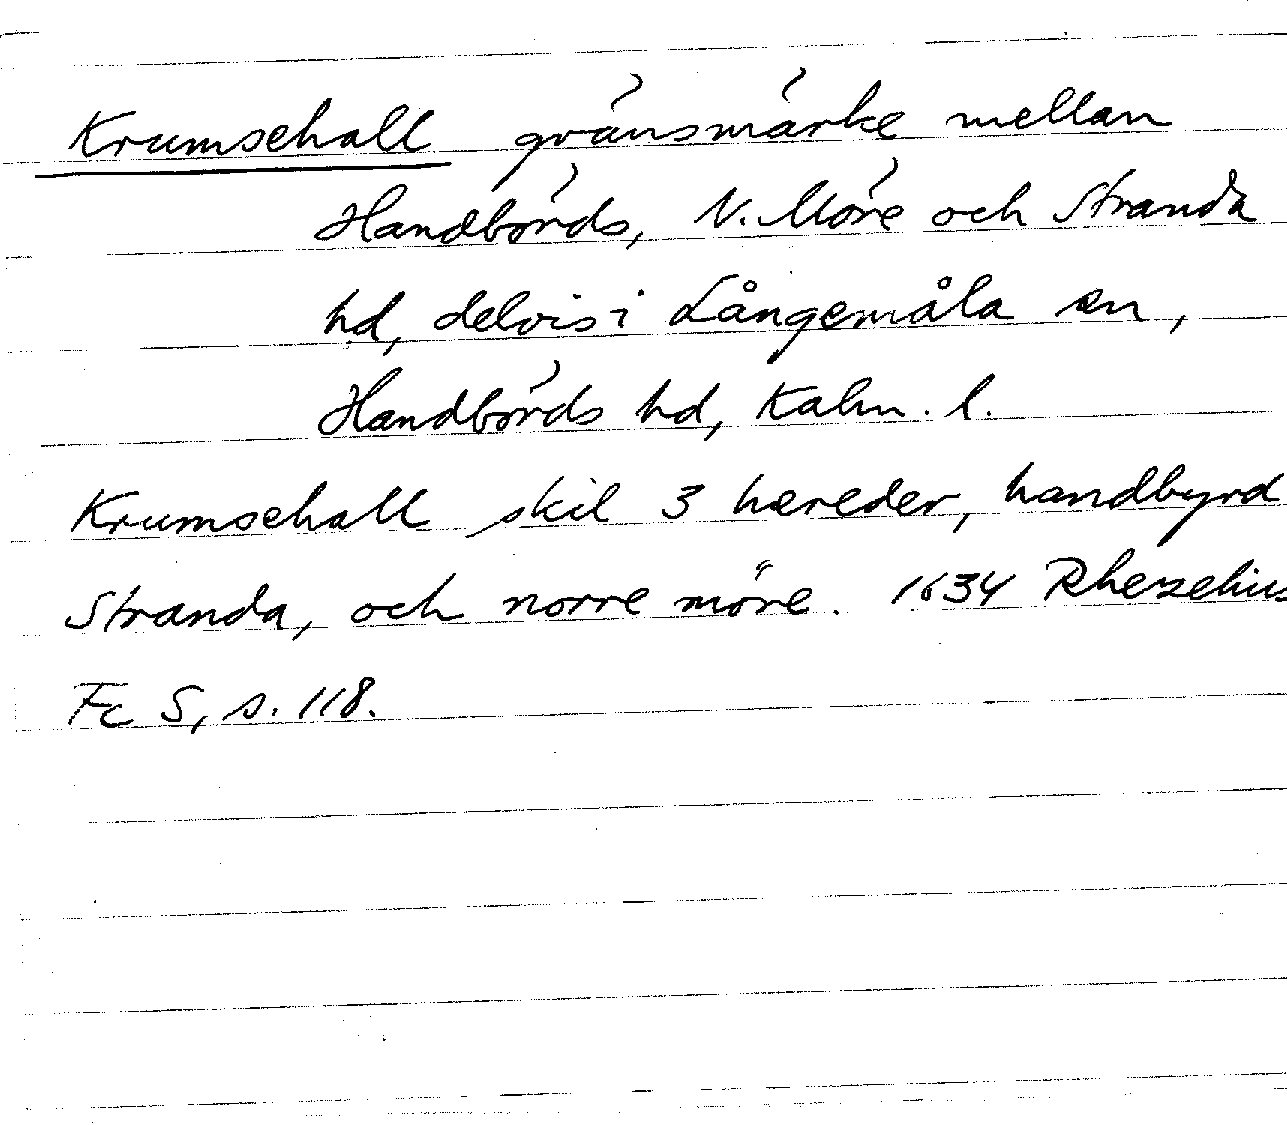 Krumsehall gränsmärke mellan
Handbörds, N. Möre och Stranda
hd, delvis i Långemåla sn,
Handbörds hd, Kalm. l.
Krumsehall skil 3 hæreder, handbyrd
Stranda, och norre möre. 1634 Rhezelius
Fc 5, s. 118.